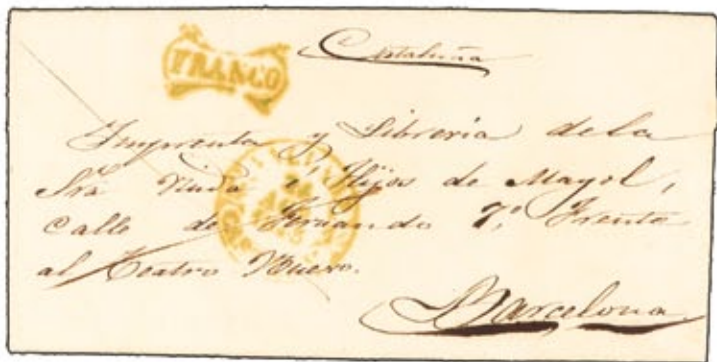 FRANCO
Cataluña
Imprenta y Librería de la
Sra Viuda é Hijos de Mayol,
Calle de Fernando 7º Frente
al Teatro Nuevo.
Barcelona